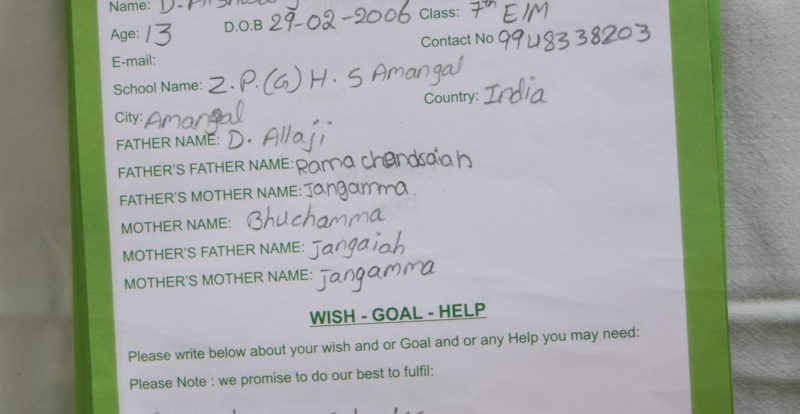 Name: D.
Age: 13 D.O.B 29-02-2006 Class: 7th E/M
Contact No 9948338203
E-mail:
School Name: Z.P.(G) H.S Amangal
City: Amangal Country: India
FATHER NAME: D. Allaji
FATHER'S FATHER NAME: Rama chandraiah
FATHER'S MOTHER NAME: Jangamma.
MOTHER NAME: Bhuchamma
MOTHER'S FATHER NAME: Jangaiah
MOTHER'S MOTHER NAME: Jangamma
WISH - GOAL - HELP
Please write below about your wish and or Goal and or any Help you may need:
Please Note : we promise to do our best to fulfil: